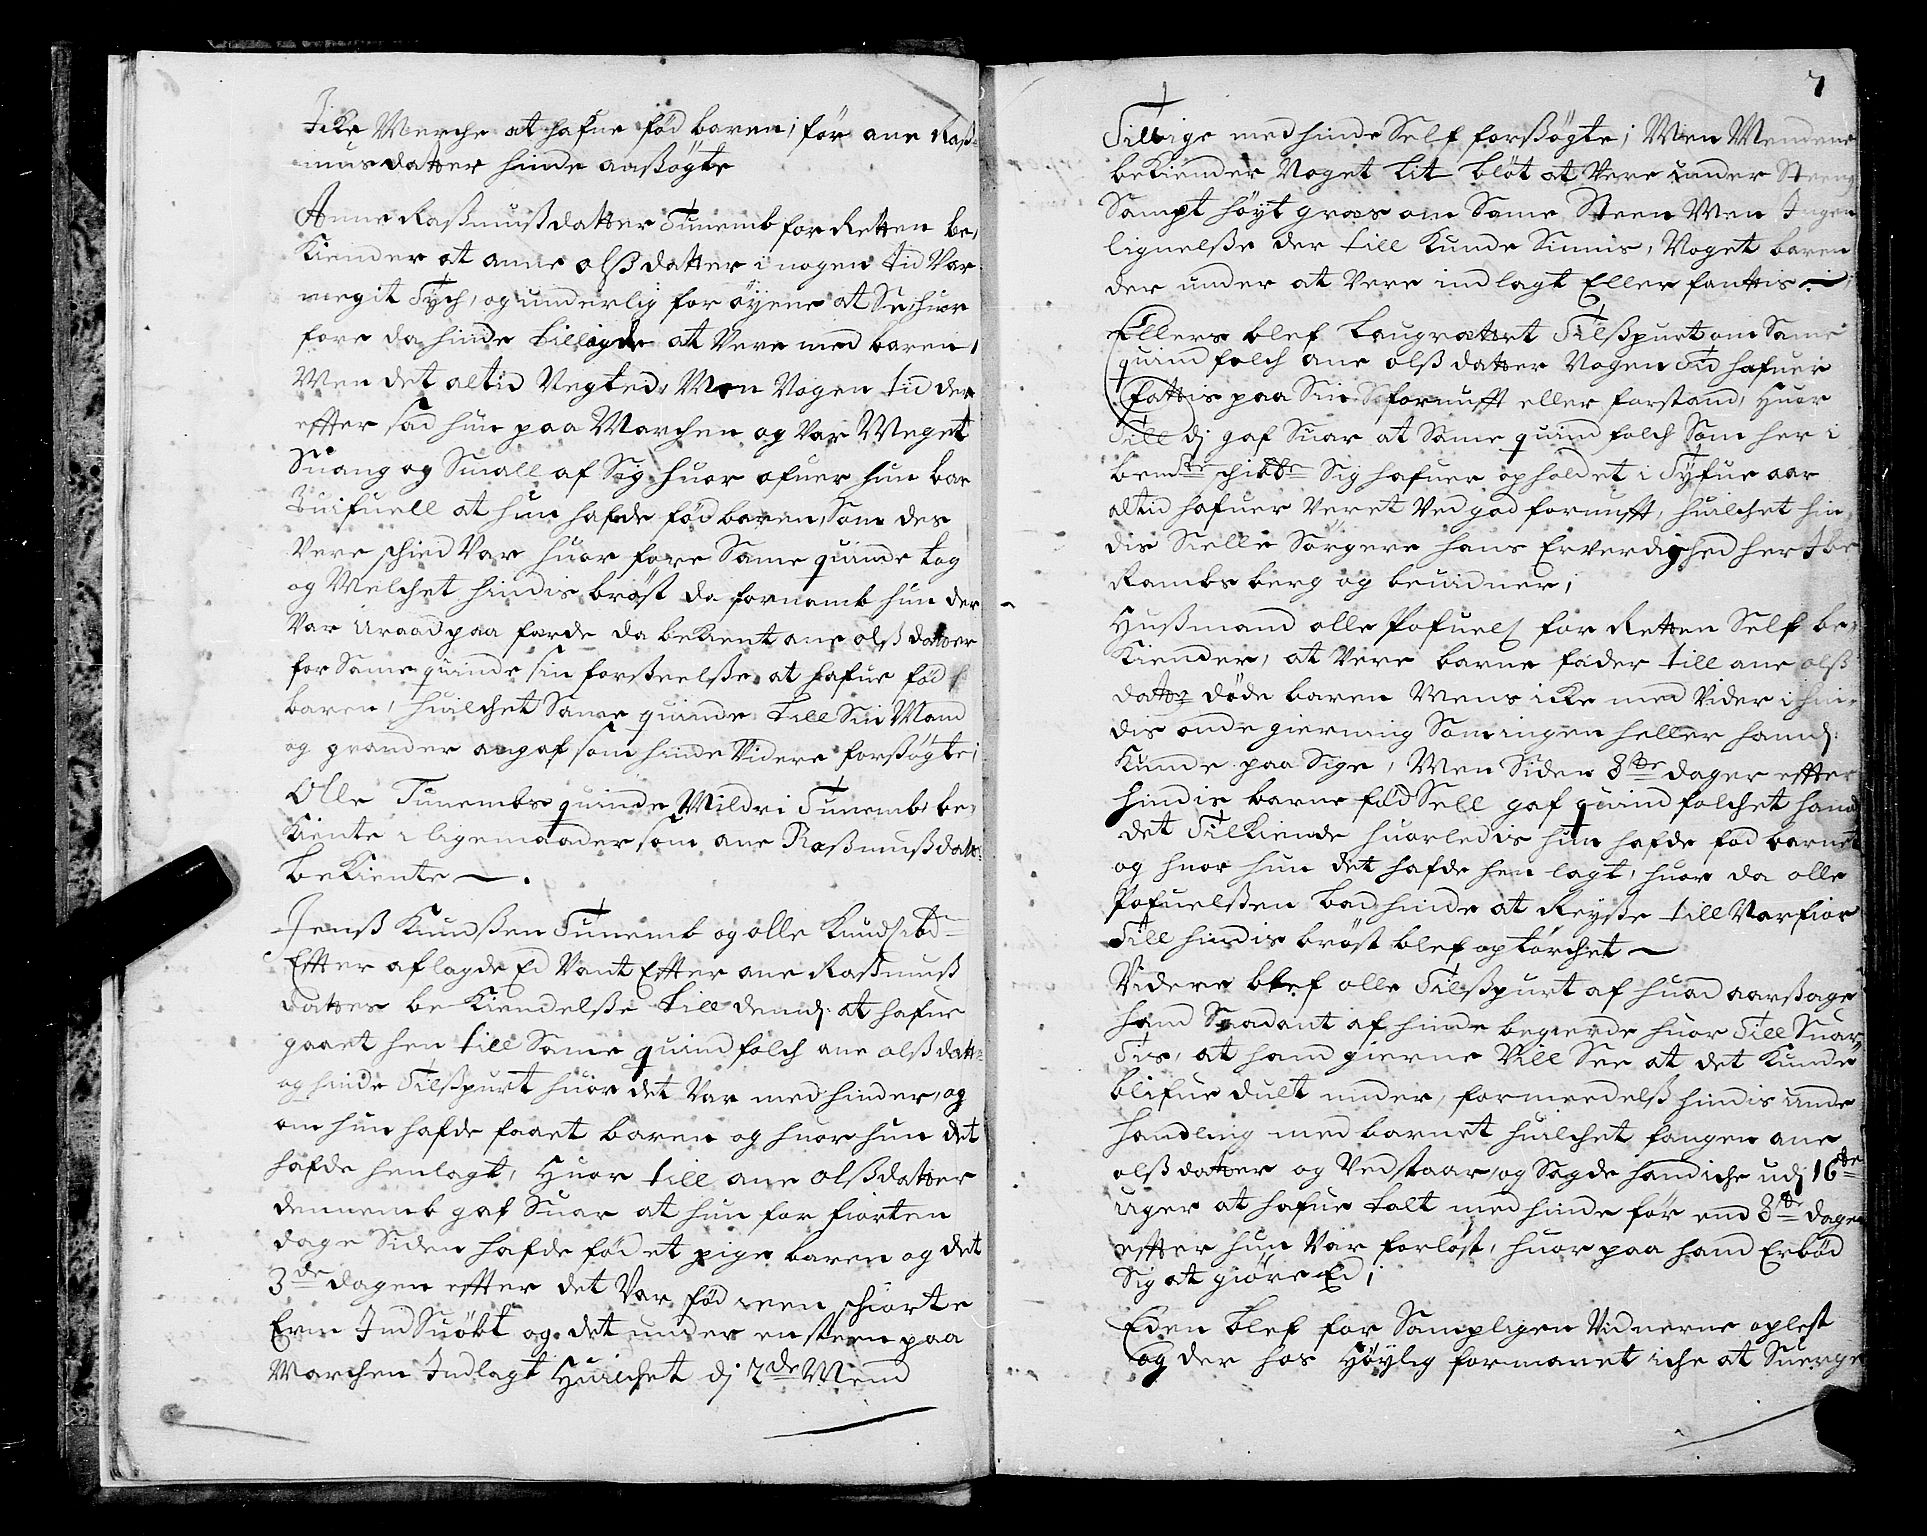 Icke Merche at hafue fød baren; før ane Raß-
musdatter hinde aassøgte
Anne Raßmußdatter Tunemb for Retten be-
Kiender at anne olßdatter i nogen tid Var
megit Tych, og underlig for øyene at See, huor
fore da hinde tillagde at Vere med baren,
Men det altid Negted, Men Nogen tid der
effter sad hun paa Marchen og Var Meget
Suang og Small af Sig huor ofuer hun bar
Tuifuell at hun hafde fød baren, Som des
Vere schied Var huor fore Same quinde tog
og Melchet hindis brøst da fornamb hun der
Var Uraad paa farde da bekient ane olßdatter
for Same quinde sin forseelße at hafue fød
baren, huilchet Same quinde till Sin Mand
og grander angaf som hinde Videre forsøgte;
Olle Tunembs quinde Mildri Tunemb be-
Kiente i ligemaader som ane Raßmußdatt:
beKiente —.
Jenß Knudßen Tunemb og olle Knudß ibd
Effter aflagde Ed Vant Effter ane Raßmuß
datters be Kiendelße till demdj at hafue
gaaet hen till Same quindfolch ane olßdatt:
og hinde Tilspurt huor det Var med hinder, og
om hun hafde faaet baren og huor hun det
hafde henlagt, Huor till ane olßdatter
dennemb gaf Suar at hun for fiorten
dage Siden hafde fød et pige baren og det
3de dagen effter det Var fød i een schiorte
Erm Ind Suøbt og det under en steen paa
Marchen Indlagt Huilchet dj 2de Mend
7
Tillige med hinde Self forsøgte; Men Mendene
bekiender Noget lit bløt at Vere under Steen
Sampt høyt græs om Same Steen Men Ingen
lignelße der till Kunde Sinnis, Noget baren
der under at Vere indlagt Eller fanttis —
Ellers blef Laugrættet Tilspurt om Same
quindfolch ane olßdatter Nogen Tid hafuer
fattis paa Sin fornufft eller forstand, Huor
Till dj gaf Suar at Same quindfolch Som her i
bemte schibbr Sig hafuer opholdet i Tyfue aar
altid hafuer Veret Ved god fornufft, huilchet hin-
dis Sielle Sørgere hans Erverdighed her Ibr
Rambsberg og beuidner;
Hußmand olle Pofuelß for Retten Self be-
Kiender, at Vere barne fader till ane olß
datter døde baren Mens icke med Vider i hin-
dis onde gierning Som ingen heller handj:
Kunde paa Sige, Men Siden 8te dager effter
hindis barne fødSell gaf quindfolchet hand
det Tilkiende huorledis hun hafde fød barnet
og huor hun det hafde hen lagt, huor da olle
Pofuelßen bad hinde at Reyße till Varfior
Till hindis brøst blef optørchet —
Videre blef olle Tilspurt af huad aarsage
hand Saadant af hinde begierde huor Till Suar-
Tis, at hand gierne Vill See at det Kunde
blifue dult under, formedelß hindis unde
handling med barnet huilchet fangen ane
olßdatter og Vedstaar, og Sagde hand iche udj 16te
Uger at hafue talt med hinde før end 8te dage
effter hun Var forløst, huor paa hand Erbød
Sig at giøre Ed;
Eden blef for Sampligen Vidnerne oplest
og der hos Høylig formanet iche at Suerge